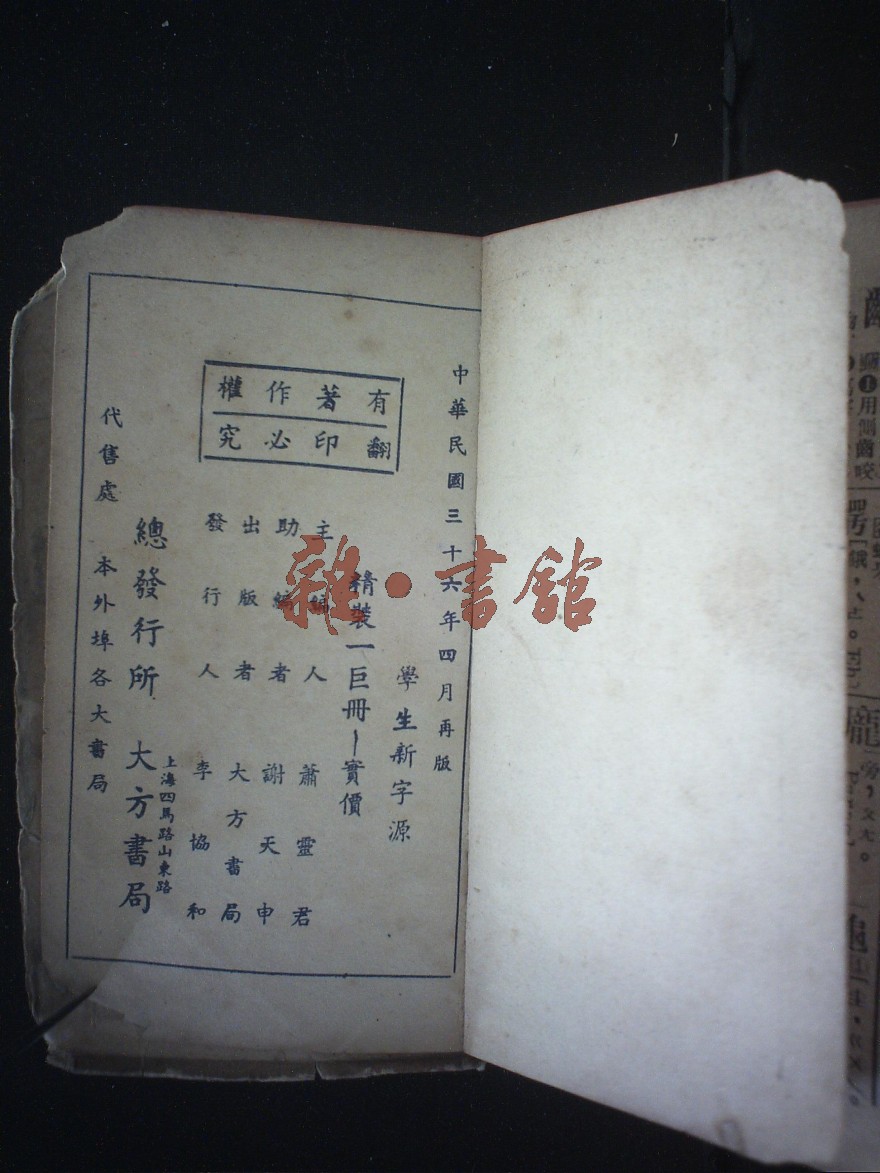 中華民國三十六年四月再版
學生新字源
精裝一巨冊 實價
主編人 蕭靈君
助編者 謝天申
出版者 大方書局
發行人 李協和
有著作權
翻印必究
上海四馬路山東路
總發行所 大方書局
代售處 本外埠各大書局
雜·書館
用側齒咬